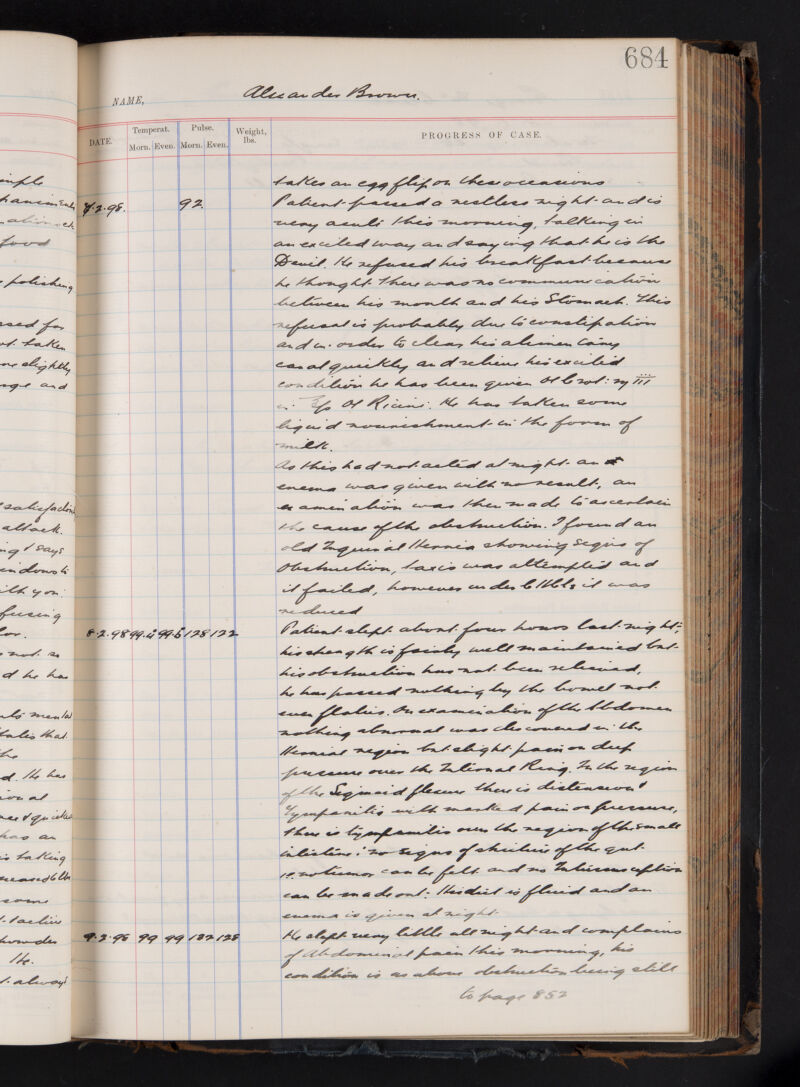 684
NAME, Alexander Brown.
DATE. Temperat. Pulse. Weight, lbs. PROGRESS OF CASE.
Morn. Even. Morn. Even.
takes an egg flip on these occasions
7.2.98. 92 Patient passed a restless night and is
very acute this morning, talking in
an excited way and saying that he is the
Devil. He refused his breakfast because
he thought there was no communication
between his mouth and his Stomach. This
refusal is probably due to constipation
and in order to clear his alimentary
canal quickly and relieve his excited
condition he has been given Ol Crot: m iii
in Ol Ricini. He has taken some
liquid nourishment in the form of
milk.
As this had not acted at night an
enema was given with no result, an
examination was then made to ascertain
the cause of the obstruction. I found an
old Inguinal Hernia showing signs of
Obstruction, taxis was attempted and
it failed, however under it was
reduced
8.2.98 128 122 Patient slept about four hours last night;
his strength is fairly well maintained but
his obstruction has not been relieved,
he has passed nothing by the bowel not
even flatus. On examination of the Abdomen
nothing abnormal was discovered in the
Hernial region but slight pain on deep
pressure over the Ring. In the region
of the Sigmoid flexure there is distension &
tympanitis with marked pain on pressure,
there is tympanitis over the region of the small
intestine: no signs of stricture of the gut
no tumor can be felt and no Intussusception
can be made out: His diet is fluid and an
enema is given at night.
9.2.98 99 99 132 128 He slept very little all night and complains
of Abdominal pain this morning, his
condition is as above obstruction being still
to page 852
imple
food
polishing
sed for
not taken
one slightly
and
satisfaction
attack.
says
with you
fusing
not so
d he has
mental
that
the
d. He has
has an
is taking
some
powder
He
t. always